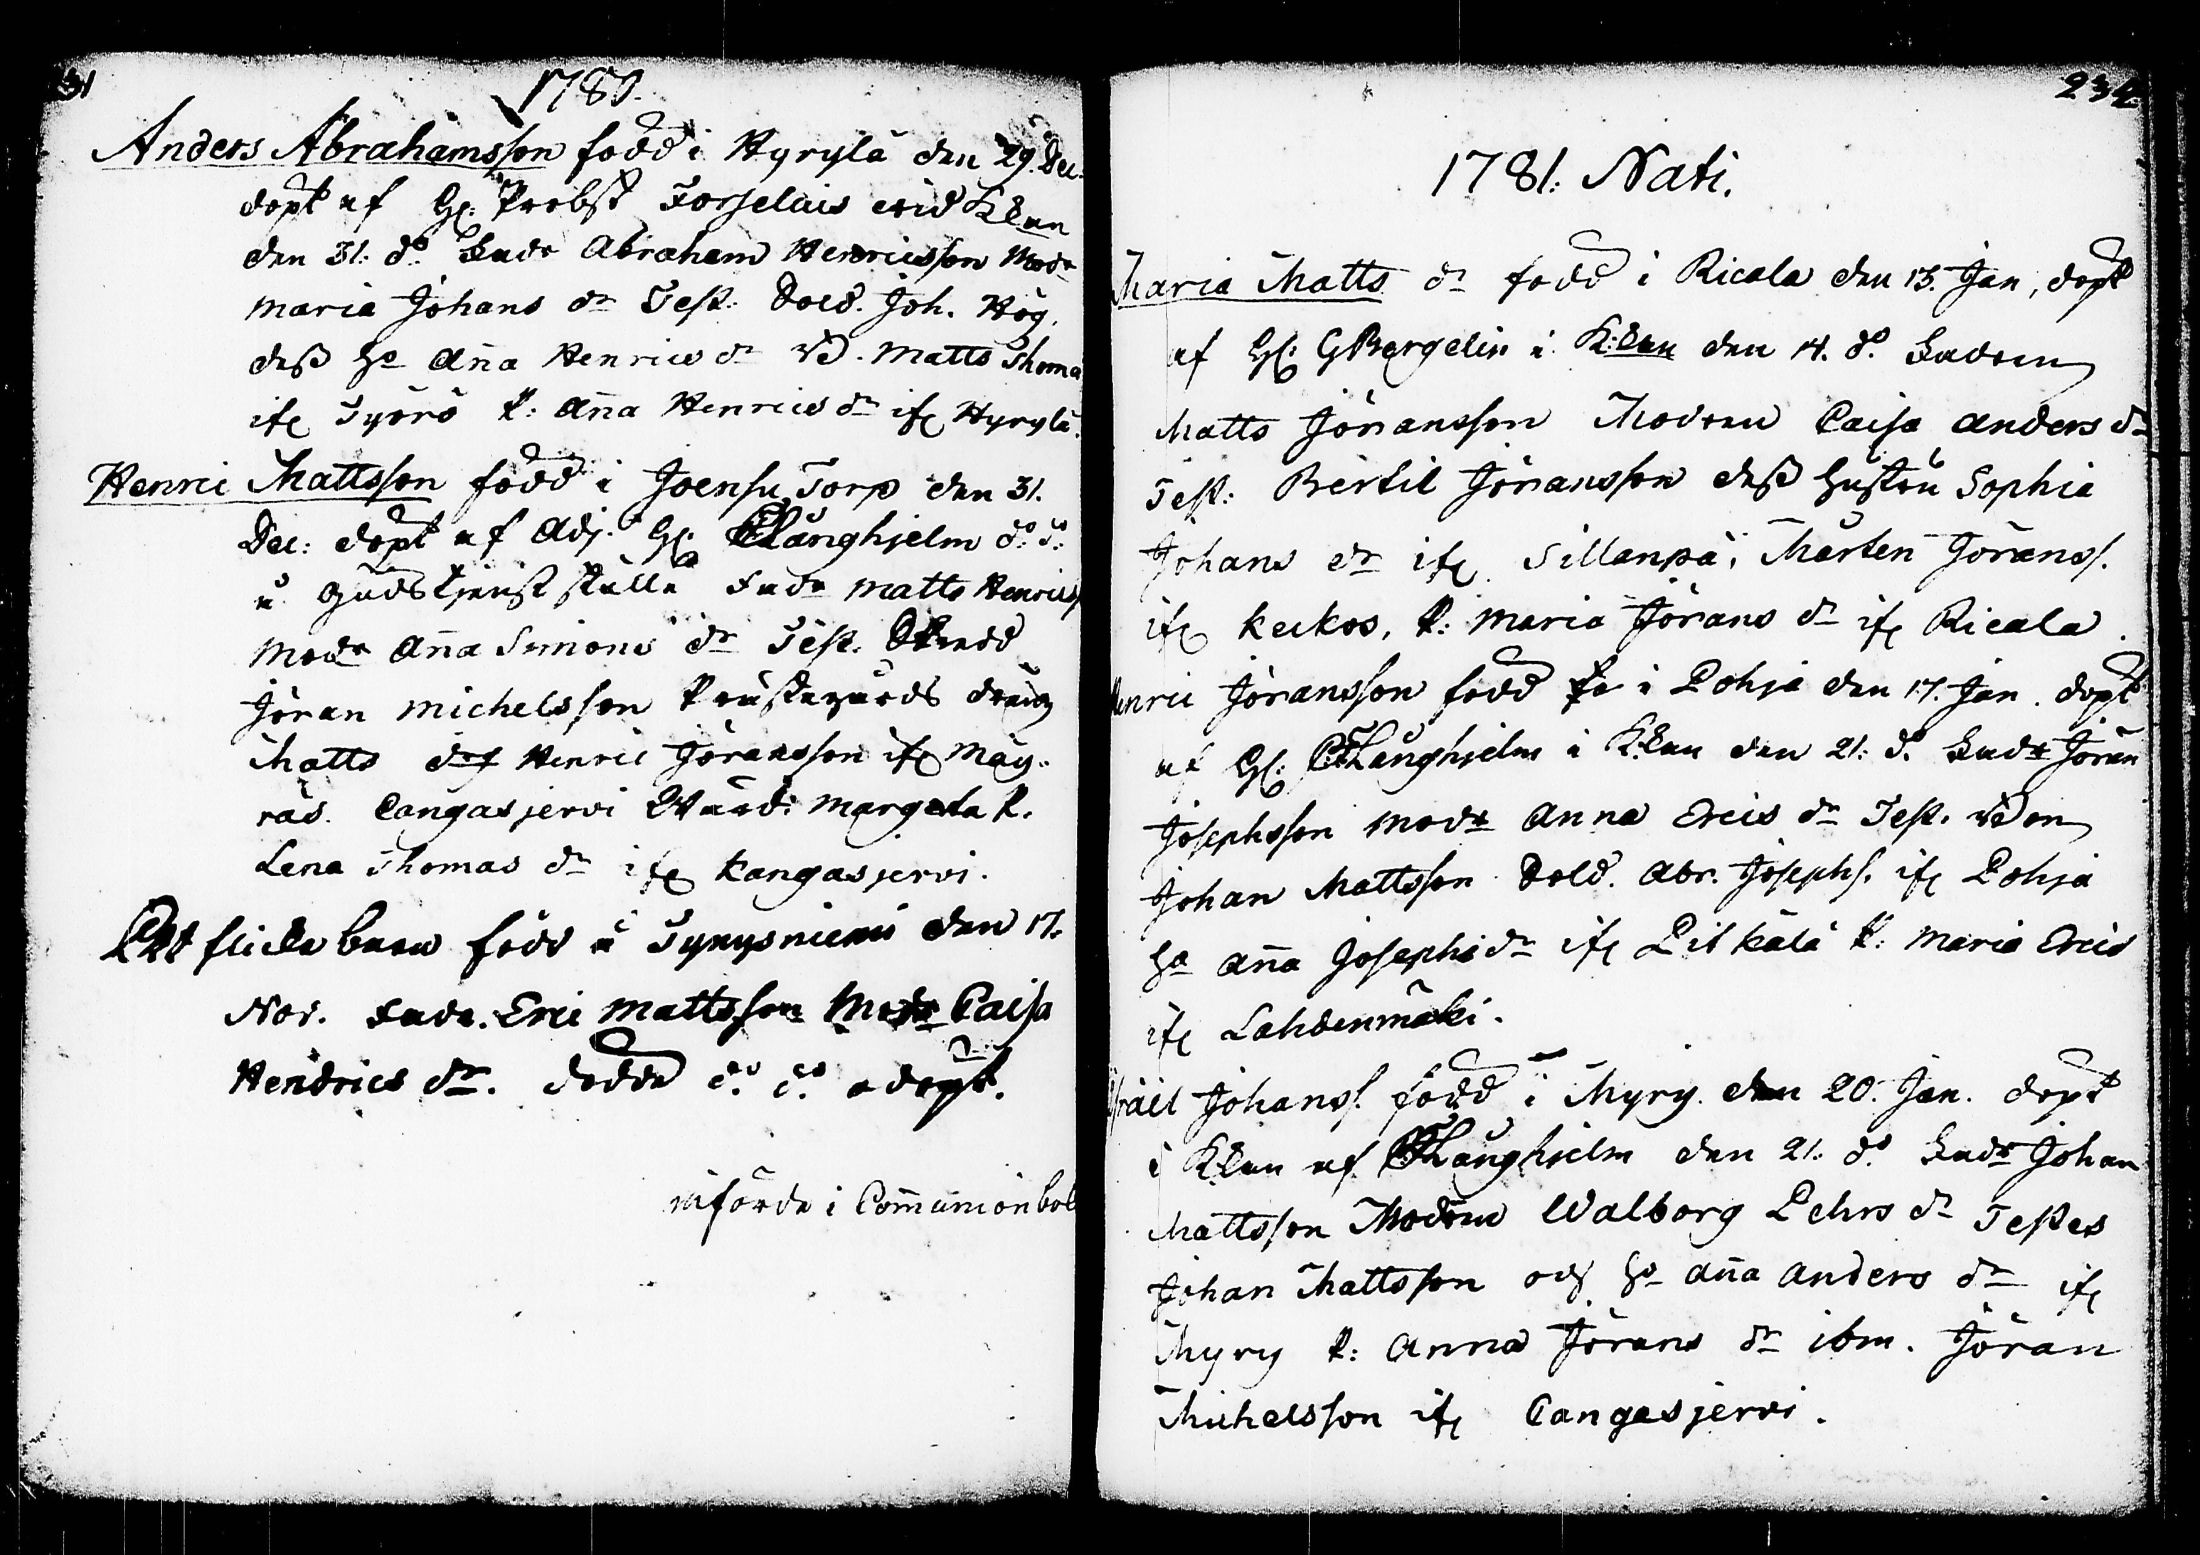 31
1780.
Anders Abrahamsson född i Hyrylä den 29. Dec.
döpt af H: Probst Forselius wid Kkan
den 31. do. Fadr Abraham Henricsson Modr
Maria Johans dr Test. Sold. Joh. Hög.
dess Ho Aña Henrics dr Vd. Matts Thoma
ifr Työrö P: Aña Henrics dr ifr Hyrylä.
Henric Mattsson född i Joensu Torp den 31.
Dec: döpt af Adj. H: Långhjelm do. do.
å Gudstjenst stället Fadr Matts Henrics.
Modr Aña Simons dr Test.
Jöran Michelsson Prästegårds dräng
Matts Henric Jöransson ifr Mäy-
räs. Cangasjervi Margeta P.
Lena Thomas dr ifr Kangasjervi.
Ett flicke barn född å Tynysniemi den 17.
Nov. Fadr. Eric Mattsson Modr Caisa
Hendrics dr. dödde do. do odöpt.
införde i Com̃unionbok
234
1781. Nati.
Maria Matts dr född i Ricala den 13. Jan, döpt
af H: GBergelin i K:kan den 14. do. Fadren
Matts Jöransson Modren Caisa Anders dr
Test: Bertil Jöransson dess Hustru Sophia
Johans dr ifr Sillanpä, Mårten Jöranss.
ifr Keckos, P: Maria Jörans dr ifr Ricala.
Henric Jöransson född i Pohja den 17. Jan. döpt
af H: Långhjelm i K:kan den 21. do. Fadr Jöran
Josephsson Modr Anna Erics dr Test. Vdon
Johan Mattsson Sold. Abr. Josephs. ifr Pohja
Ho Aña Josephs dr ifr Pitkälä P: Maria Erics
ifr Lahdenmäki.
Isräel Johanss. född i Myry den 20. Jan. döpt
i Kkan af Långhjelm den 21. do. Fadr Johan
Mattsson Modren Walborg Pehrs dr Testes
Johan Mattsson och Ho Aña Anders dr ifr
Myry P: Anna Jörans dr ibm. Jöran
Michelsson ifr Cangasjervi.